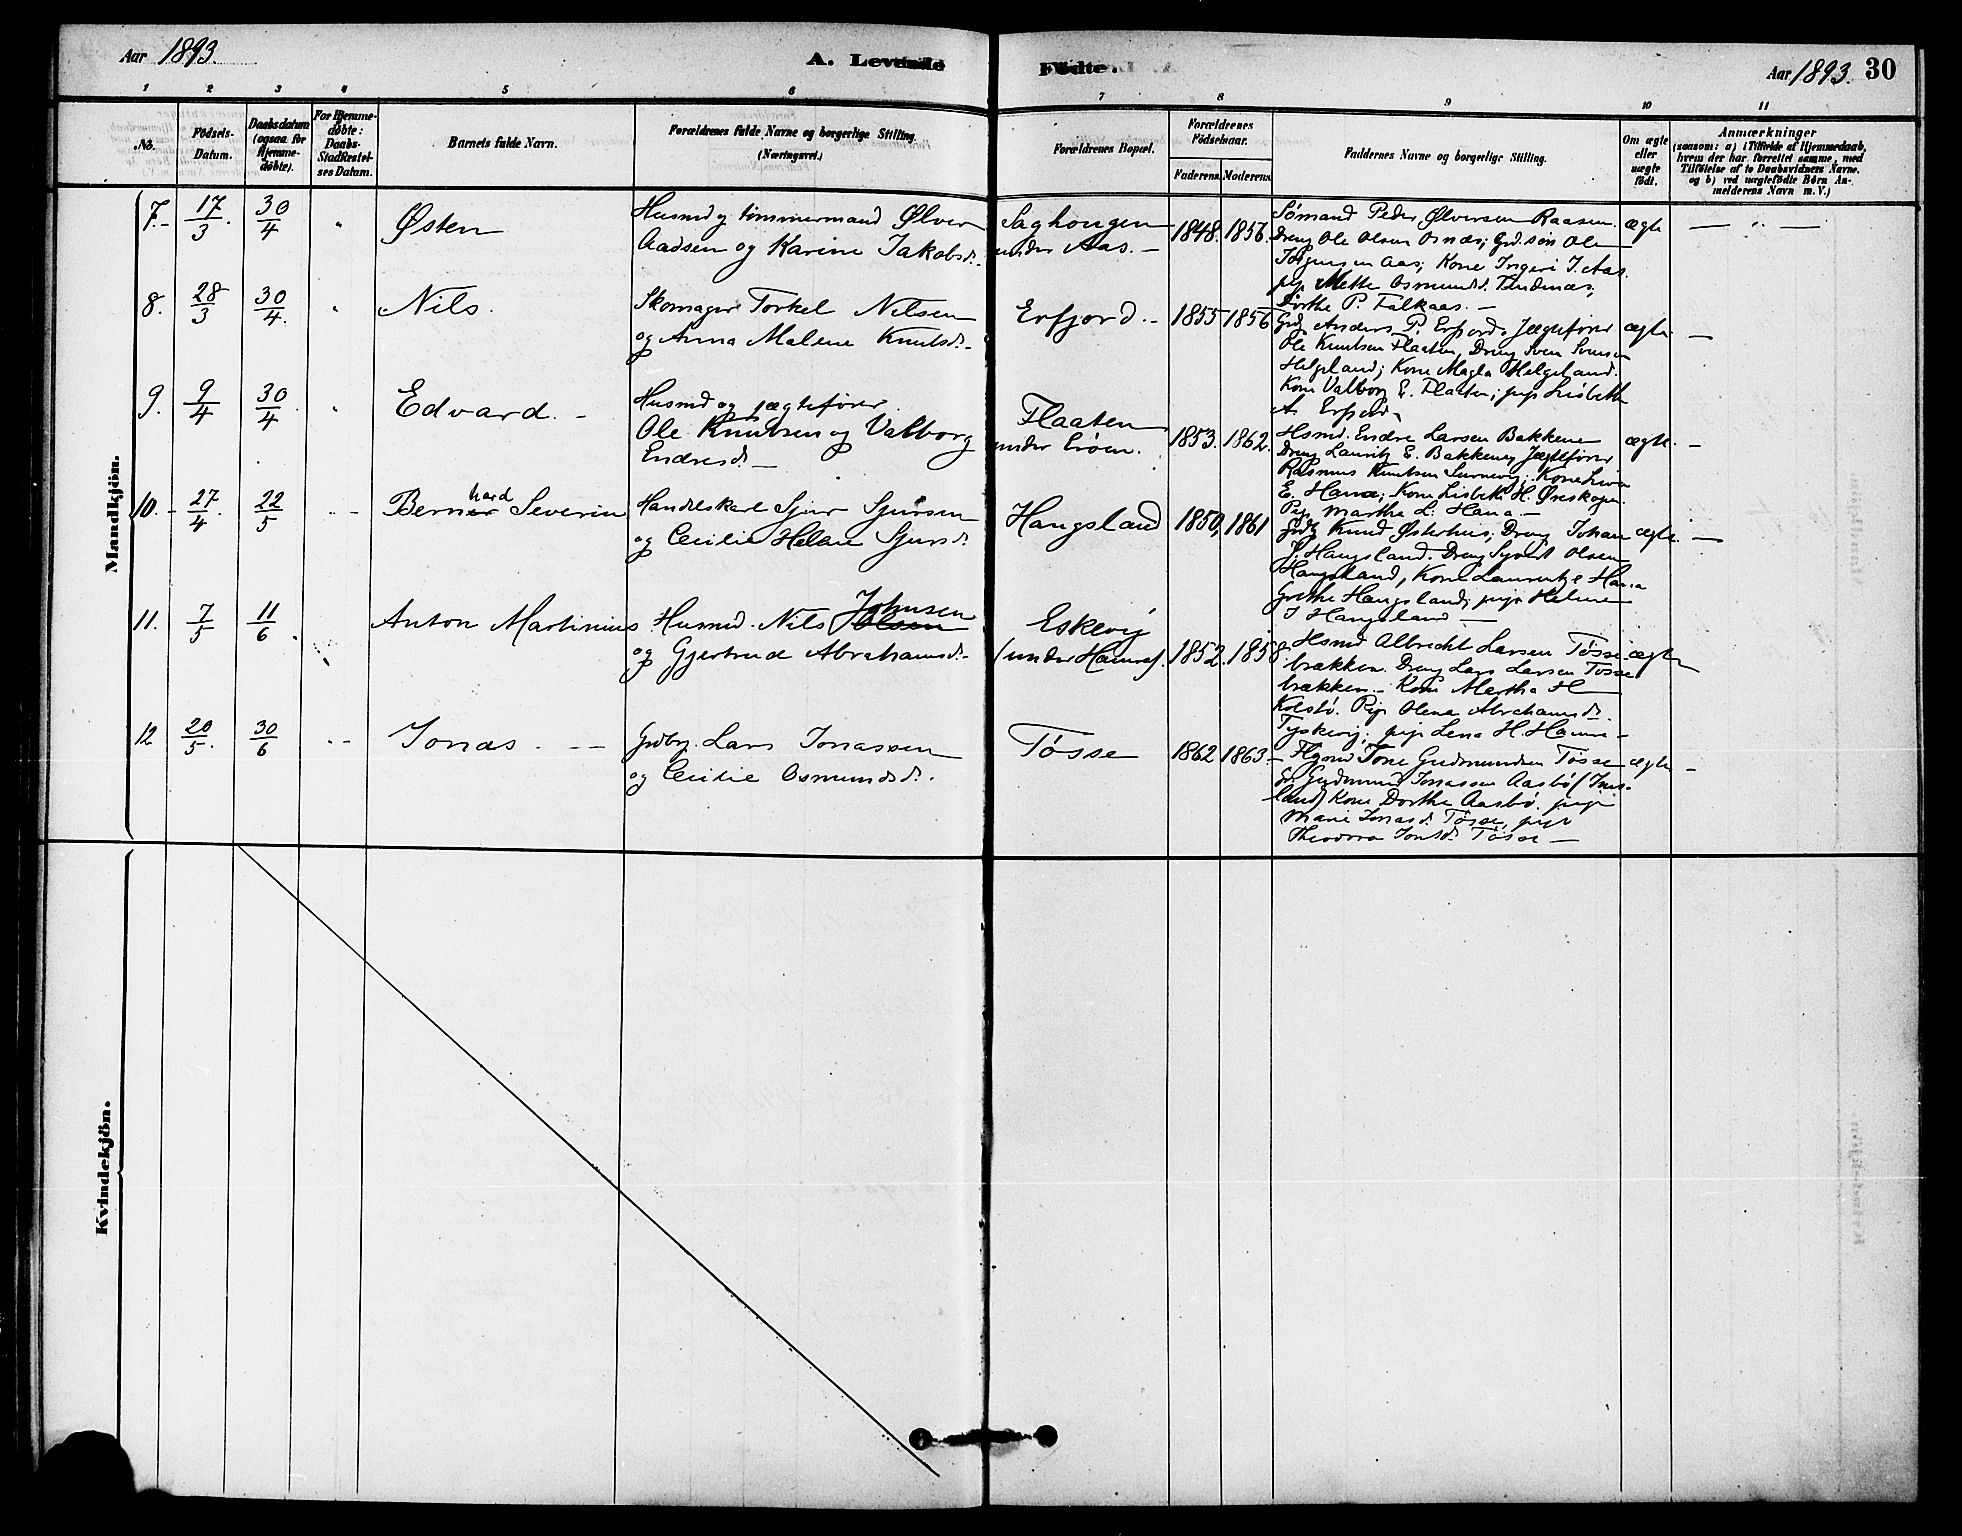 Aar 1893.
A. Levende
Fødte.
Aar 1893. 30
1 2 3 4 5 6 7 8 9 10 11
No.
Födsels-
Datum.
Daabsdatum
(ogsaa for
Hjemme-
döbte).
For Hjemme-
döbte:
Daabs-
Stadfæstel-
ses Datum.
Barnets fulde Navn.
Forældrenes fulde Navne og borgerlige Stilling.
(Næringsvei.)
Forældrenes Bopæl.
Forældrenes
Födselsaar.
Faderens. Moderens.
Faddernes Navne og borgerlige Stilling.
Om ægte
eller
uægte
født.
Anmærkninger
(saasom: a) i Tilfælde af Hjemmedaab,
hvem der har forrettet samme, med
Tilföielse af to Daabsvidners Navne.
og b) ved uægtefödte Börn An-
melderens Navn m. V.)
Mandkjön.
7. 17/3. 30/4 " Østen
Husmd og tømmermand Ølver
Aadsen og Karine Jakobsd.
Saghougen
under Aas. —
1848. 1856.
Sømand Peder Ølversen Raasen.
Dreng Ole Olsen Osnæs; Grd.søn Ole
Torgersen Aas; Kone Ingeri J. Aas.
pige Mette Osmundsd. Tindenæs;
Dorthe P. Falkaas. —
ægte — " —
8. 28/3 30/4. " Nils.
Skomager Torkel Nilsen
og Anna Malene Knutsd. —
Erfjord. —
1855 1856
Grdb. Anders P. Erfjord. Jægtefører
Ole Knutsen Flaaten, Dreng Sven Svensen
Helgeland; Kone Magla Helgeland.
Kone Valborg E. Flaaten; pige Lisbeth
A. Erfjord.
ægte —
9. 9/4 30/4 " Edvard. —
Husmd og jægtefører
Ole Knutsen og Valborg
Endresd. —
Flaaten
under Eröen.
1853. 1862.
Hsmd. Endre Larsen Bakkene
Dreng Lauritz E. Bakkene; Jægtefører
Rasmus Knutsen; Kone Lisa
E. Hana; Kone Lisbeth H. Øreskogen.
Pige Martha L. Hana. —
ægte. —
10. 27/4. 22/5 " Bernhard Severin
Handelskarl Sjur Sjursen
og Cecilie Helene Sjursd.
Hangsland
1850, 1861
Grdb. Knud Østerhus, Dreng Johan
J. Hangsland. Dreng Sjvert Olsen
Hangsland, Kone Laurentze Hana
Grethe Hangsland; pige Helene
J Hangsland —
ægte. —
11. 7/5 11/6. Anton Martinius
Husmd. Nils Johnsen
og Gjertrud Abrahamsd. —
Eskevig
(under Hamre).
1852. 1858
Hsmd Albrecht Larsen Tøsse-
brækken. Dreng Lars Larsen Tøsse
brækken. Kone Martha H
Kolstø. Pige Olena Abrahamsd.
Tyskevig; pige Lena H. Hamre —
ægte —
12 20/5. 30/6 " Jonas. —
Grdbrg. Lars Jonassen
og Cecilie Osmundsd.
Tøsse
1862 1863 —
Tøsse
Gr. Gudmund Jonassen Aasbø (Imsland)
Kone Dorthe Aasbø. pige
Marie Jonasd. Tøsse, pige
Theodora Tøsse —
ægte —
Kvindekjön.